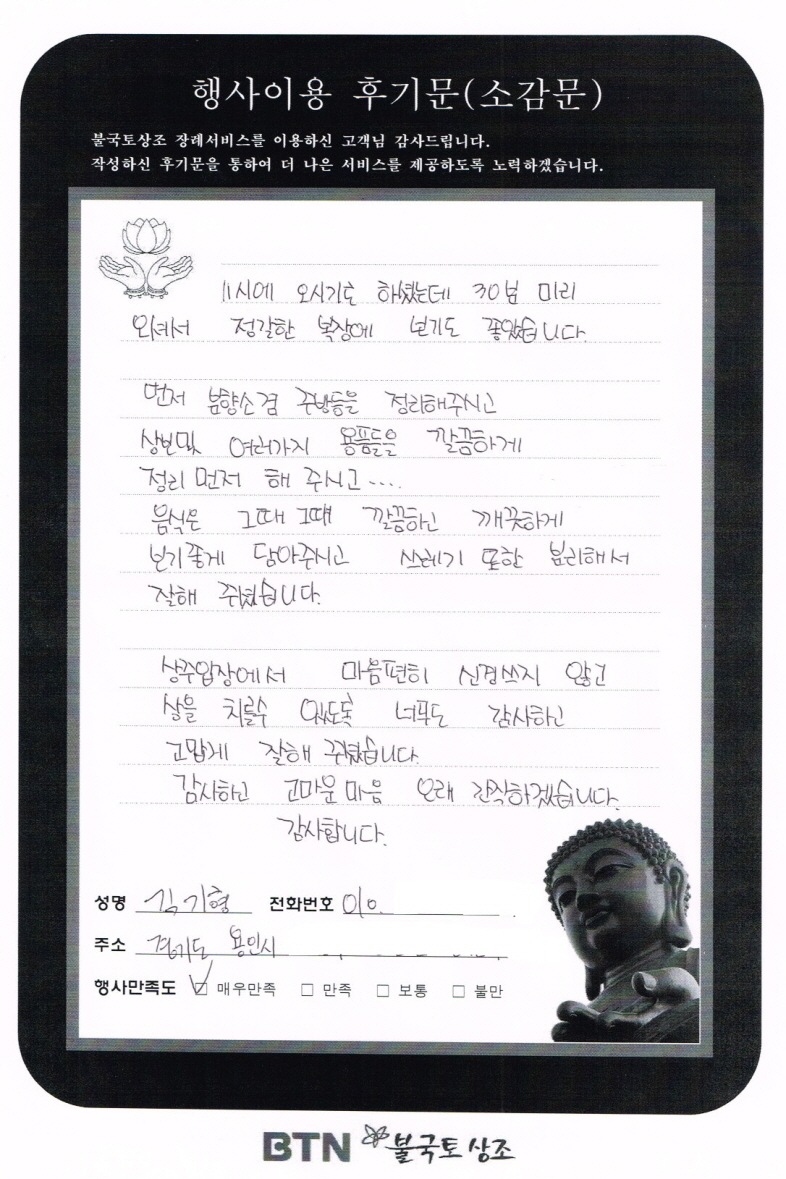 행사이용 후기문(소감문)
불국토상조 장례서비스를 이용하신 고객님 감사드립니다.
작성하신 후기문을 통하여 더 나은 서비스를 제공하도록 노력하겠습니다.
11시에 오시기로 하셨는데 30분 미리
오셔서 정갈한 복장에 보기도 좋았습니다.
먼저 분향소겸 주방등을 정리해주시고
상보및 여러가지 용품들을 깔끔하게
정리 먼저 해 주시고....
음식은 그때 그때 깔끔하고 깨끗하게
보기좋게 담아주시고 쓰레기 또한 분리해서
잘해 주셨습니다.
상주입장에서 마음편히 신경쓰지 않고
상을 치를수 있도록 너무도 감사하고
고맙게 잘해 주셨습니다.
감사하고 고마운 마음 오래 간직하겠습니다.
감사합니다.
성명 김기형 전화번호 010.
주소 경기도 용인시
행사만족도 ☑ 매우만족 □ 만족 □ 보통 □ 불만
BTN 불국토상조